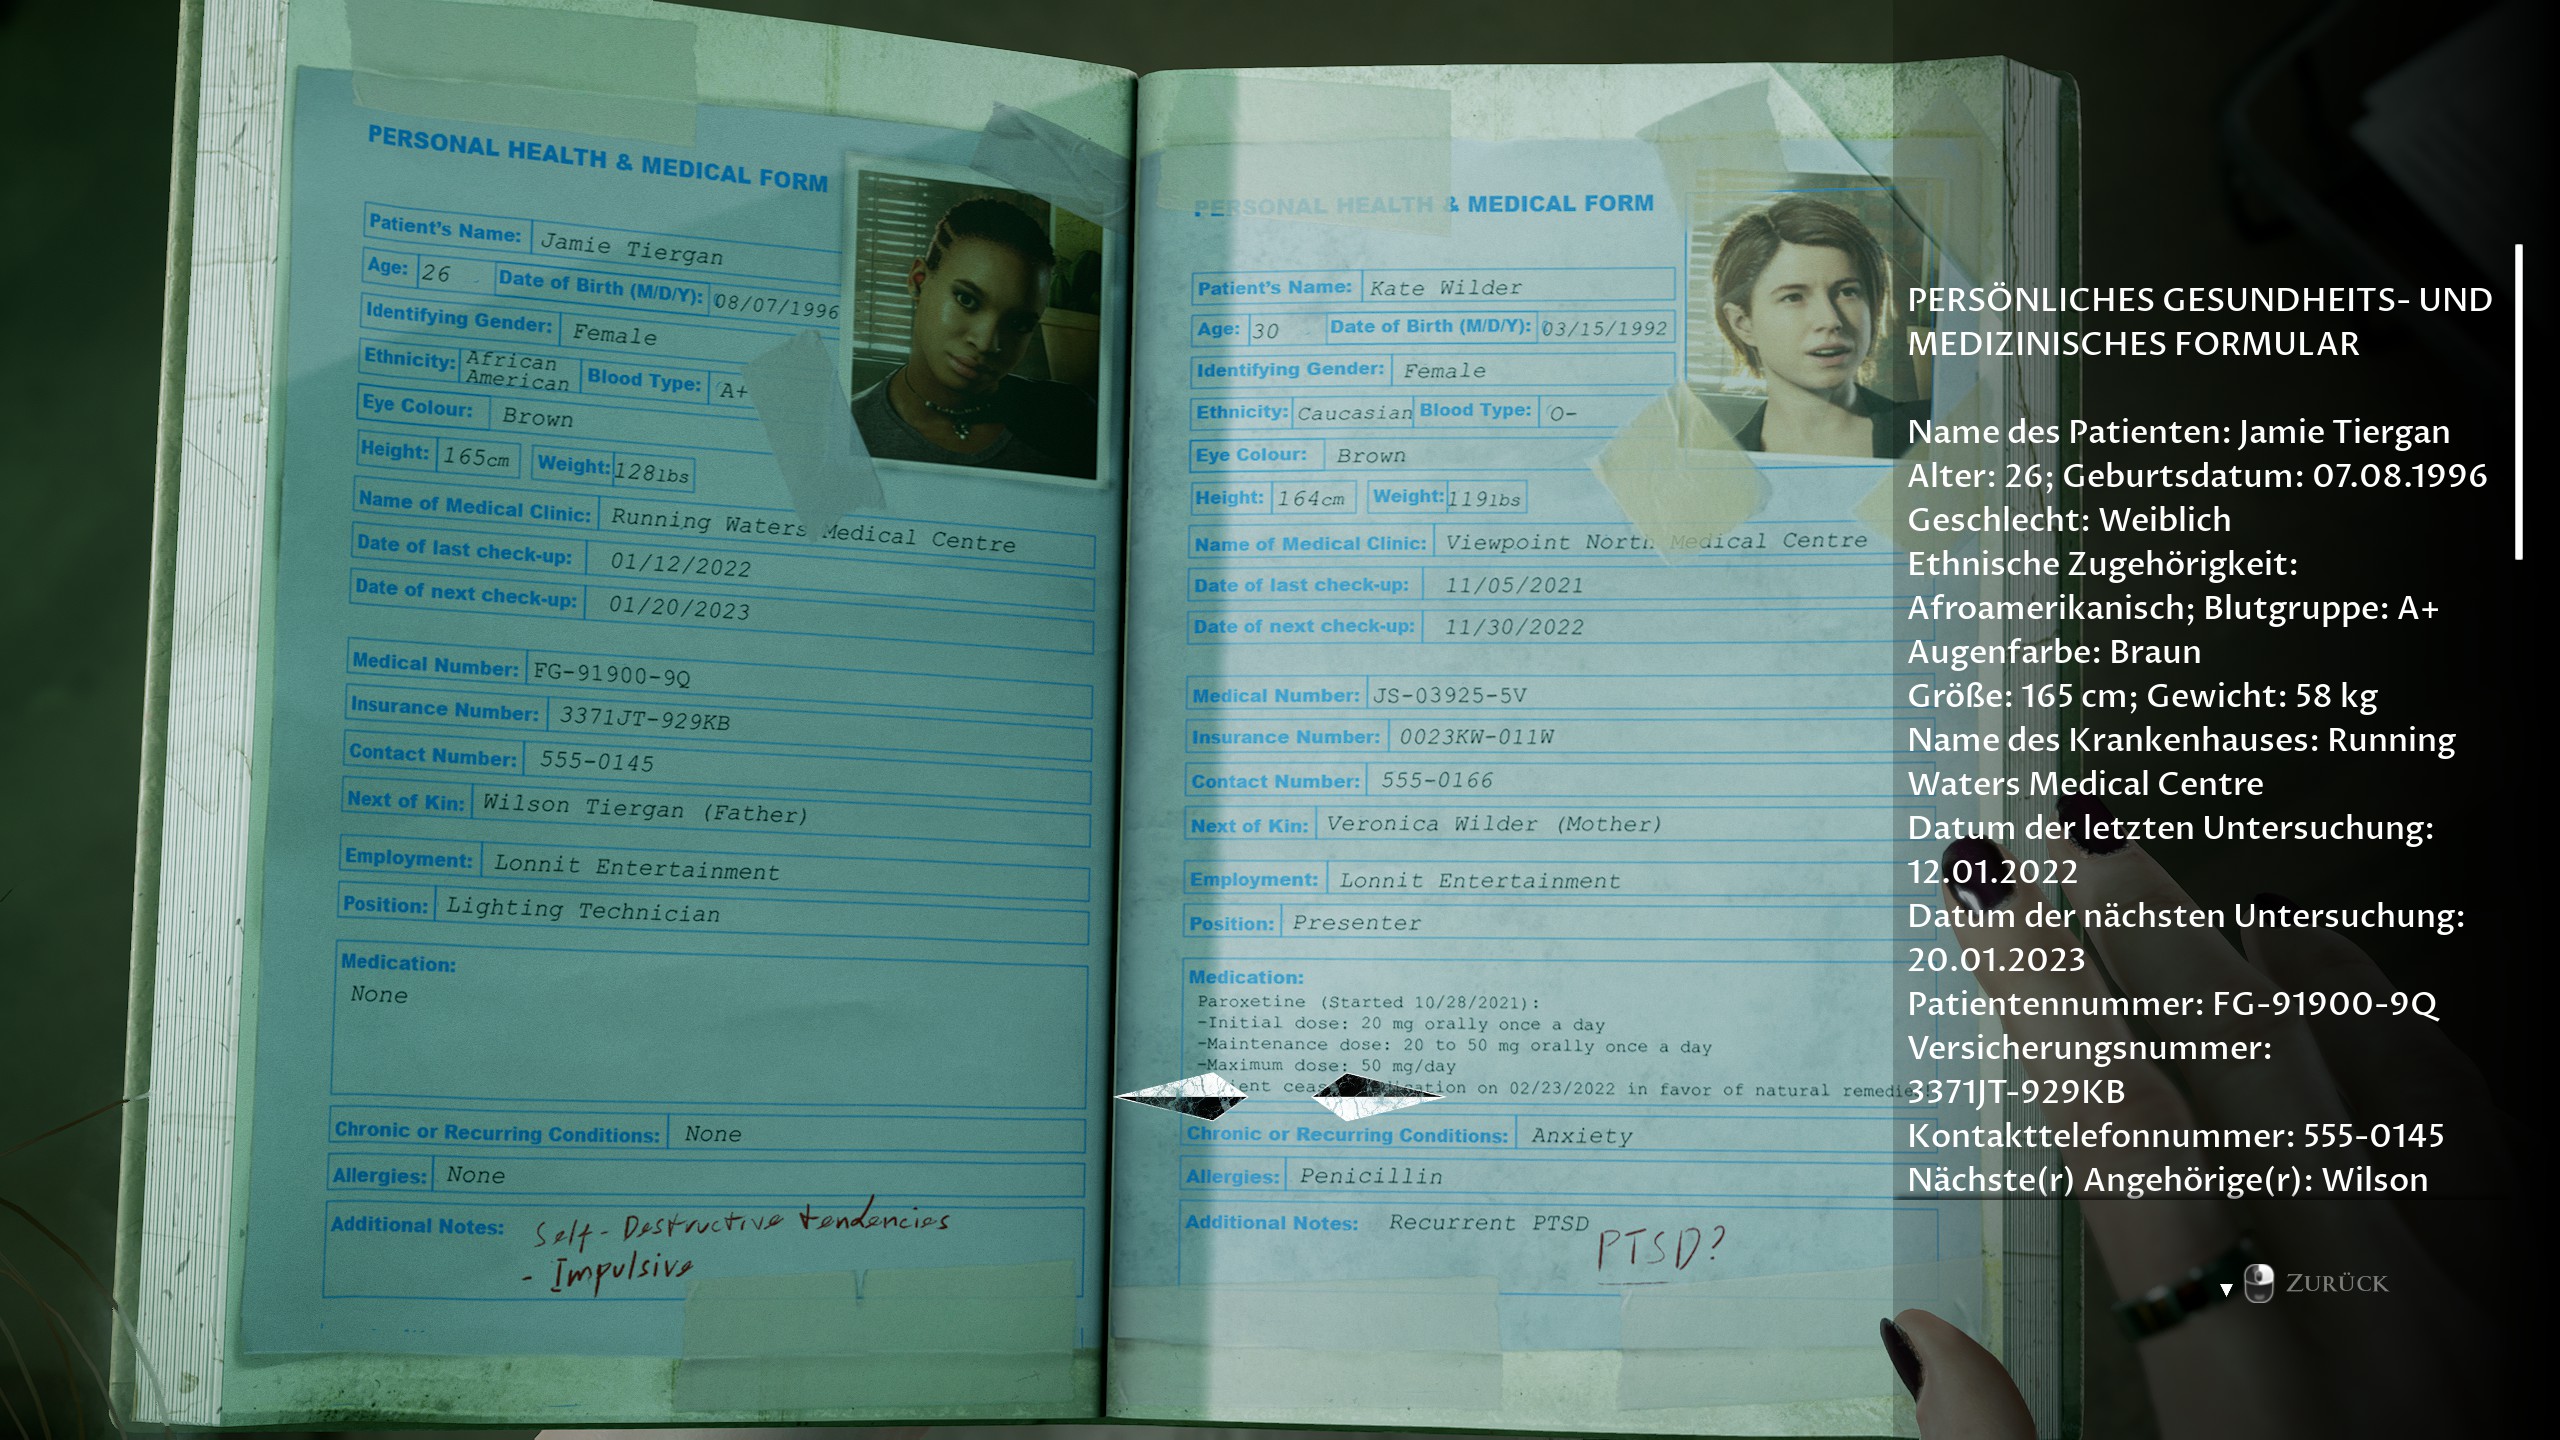 PERSONAL HEALTH & MEDICAL FORM
Patient's Name: Jamie Tiergan
Age: 26 Date of Birth (M/D/Y): 08/07/1996
Identifying Gender: Female
Ethnicity: African American Blood Type: A+
Eye Colour: Brown
Height: 165cm Weight: 128lbs
Name of Medical Clinic: Running Waters Medical Centre
Date of last check-up: 01/12/2022
Date of next check-up: 01/20/2023
Medical Number: FG-91900-9Q
Insurance Number: 3371JT-929KB
Contact Number: 555-0145
Next of Kin: Wilson Tiergan (Father)
Employment: Lonnit Entertainment
Position: Lighting Technician
Medication:
None
Chronic or Recurring Conditions: None
Allergies: None
Additional Notes: Self-Destructive tendencies
- Impulsive
PERSONAL HEALTH & MEDICAL FORM
Patient's Name: Kate Wilder
Age: 30 Date of Birth (M/D/Y): 03/15/1992
Identifying Gender: Female
Ethnicity: Caucasian Blood Type: O-
Eye Colour: Brown
Height: 164cm Weight: 119lbs
Name of Medical Clinic: Viewpoint North Medical Centre
Date of last check-up: 11/05/2021
Date of next check-up: 11/30/2022
Medical Number: JS-03925-5V
Insurance Number: 0023KW-011W
Contact Number: 555-0166
Next of Kin: Veronica Wilder (Mother)
Employment: Lonnit Entertainment
Position: Presenter
Medication:
Paroxetine (Started 10/28/2021):
-Initial dose: 20 mg orally once a day
-Maintenance dose: 20 to 50 mg orally once a day
-Maximum dose: 50 mg/day
on 02/23/2022 in favor of natural
Chronic or Recurring Conditions: Anxiety
Allergies: Penicillin
Additional Notes: Recurrent PTSD
PTSD?
PERSÖNLICHES GESUNDHEITS- UND
MEDIZINISCHES FORMULAR
Name des Patienten: Jamie Tiergan
Alter: 26; Geburtsdatum: 07.08.1996
Geschlecht: Weiblich
Ethnische Zugehörigkeit:
Afroamerikanisch; Blutgruppe: A+
Augenfarbe: Braun
Größe: 165 cm; Gewicht: 58 kg
Name des Krankenhauses: Running
Waters Medical Centre
Datum der letzten Untersuchung:
12.01.2022
Datum der nächsten Untersuchung:
20.01.2023
Patientennummer: FG-91900-9Q
Versicherungsnummer:
3371JT-929KB
Kontakttelefonnummer: 555-0145
Nächste(r) Angehörige(r): Wilson
ZURÜCK